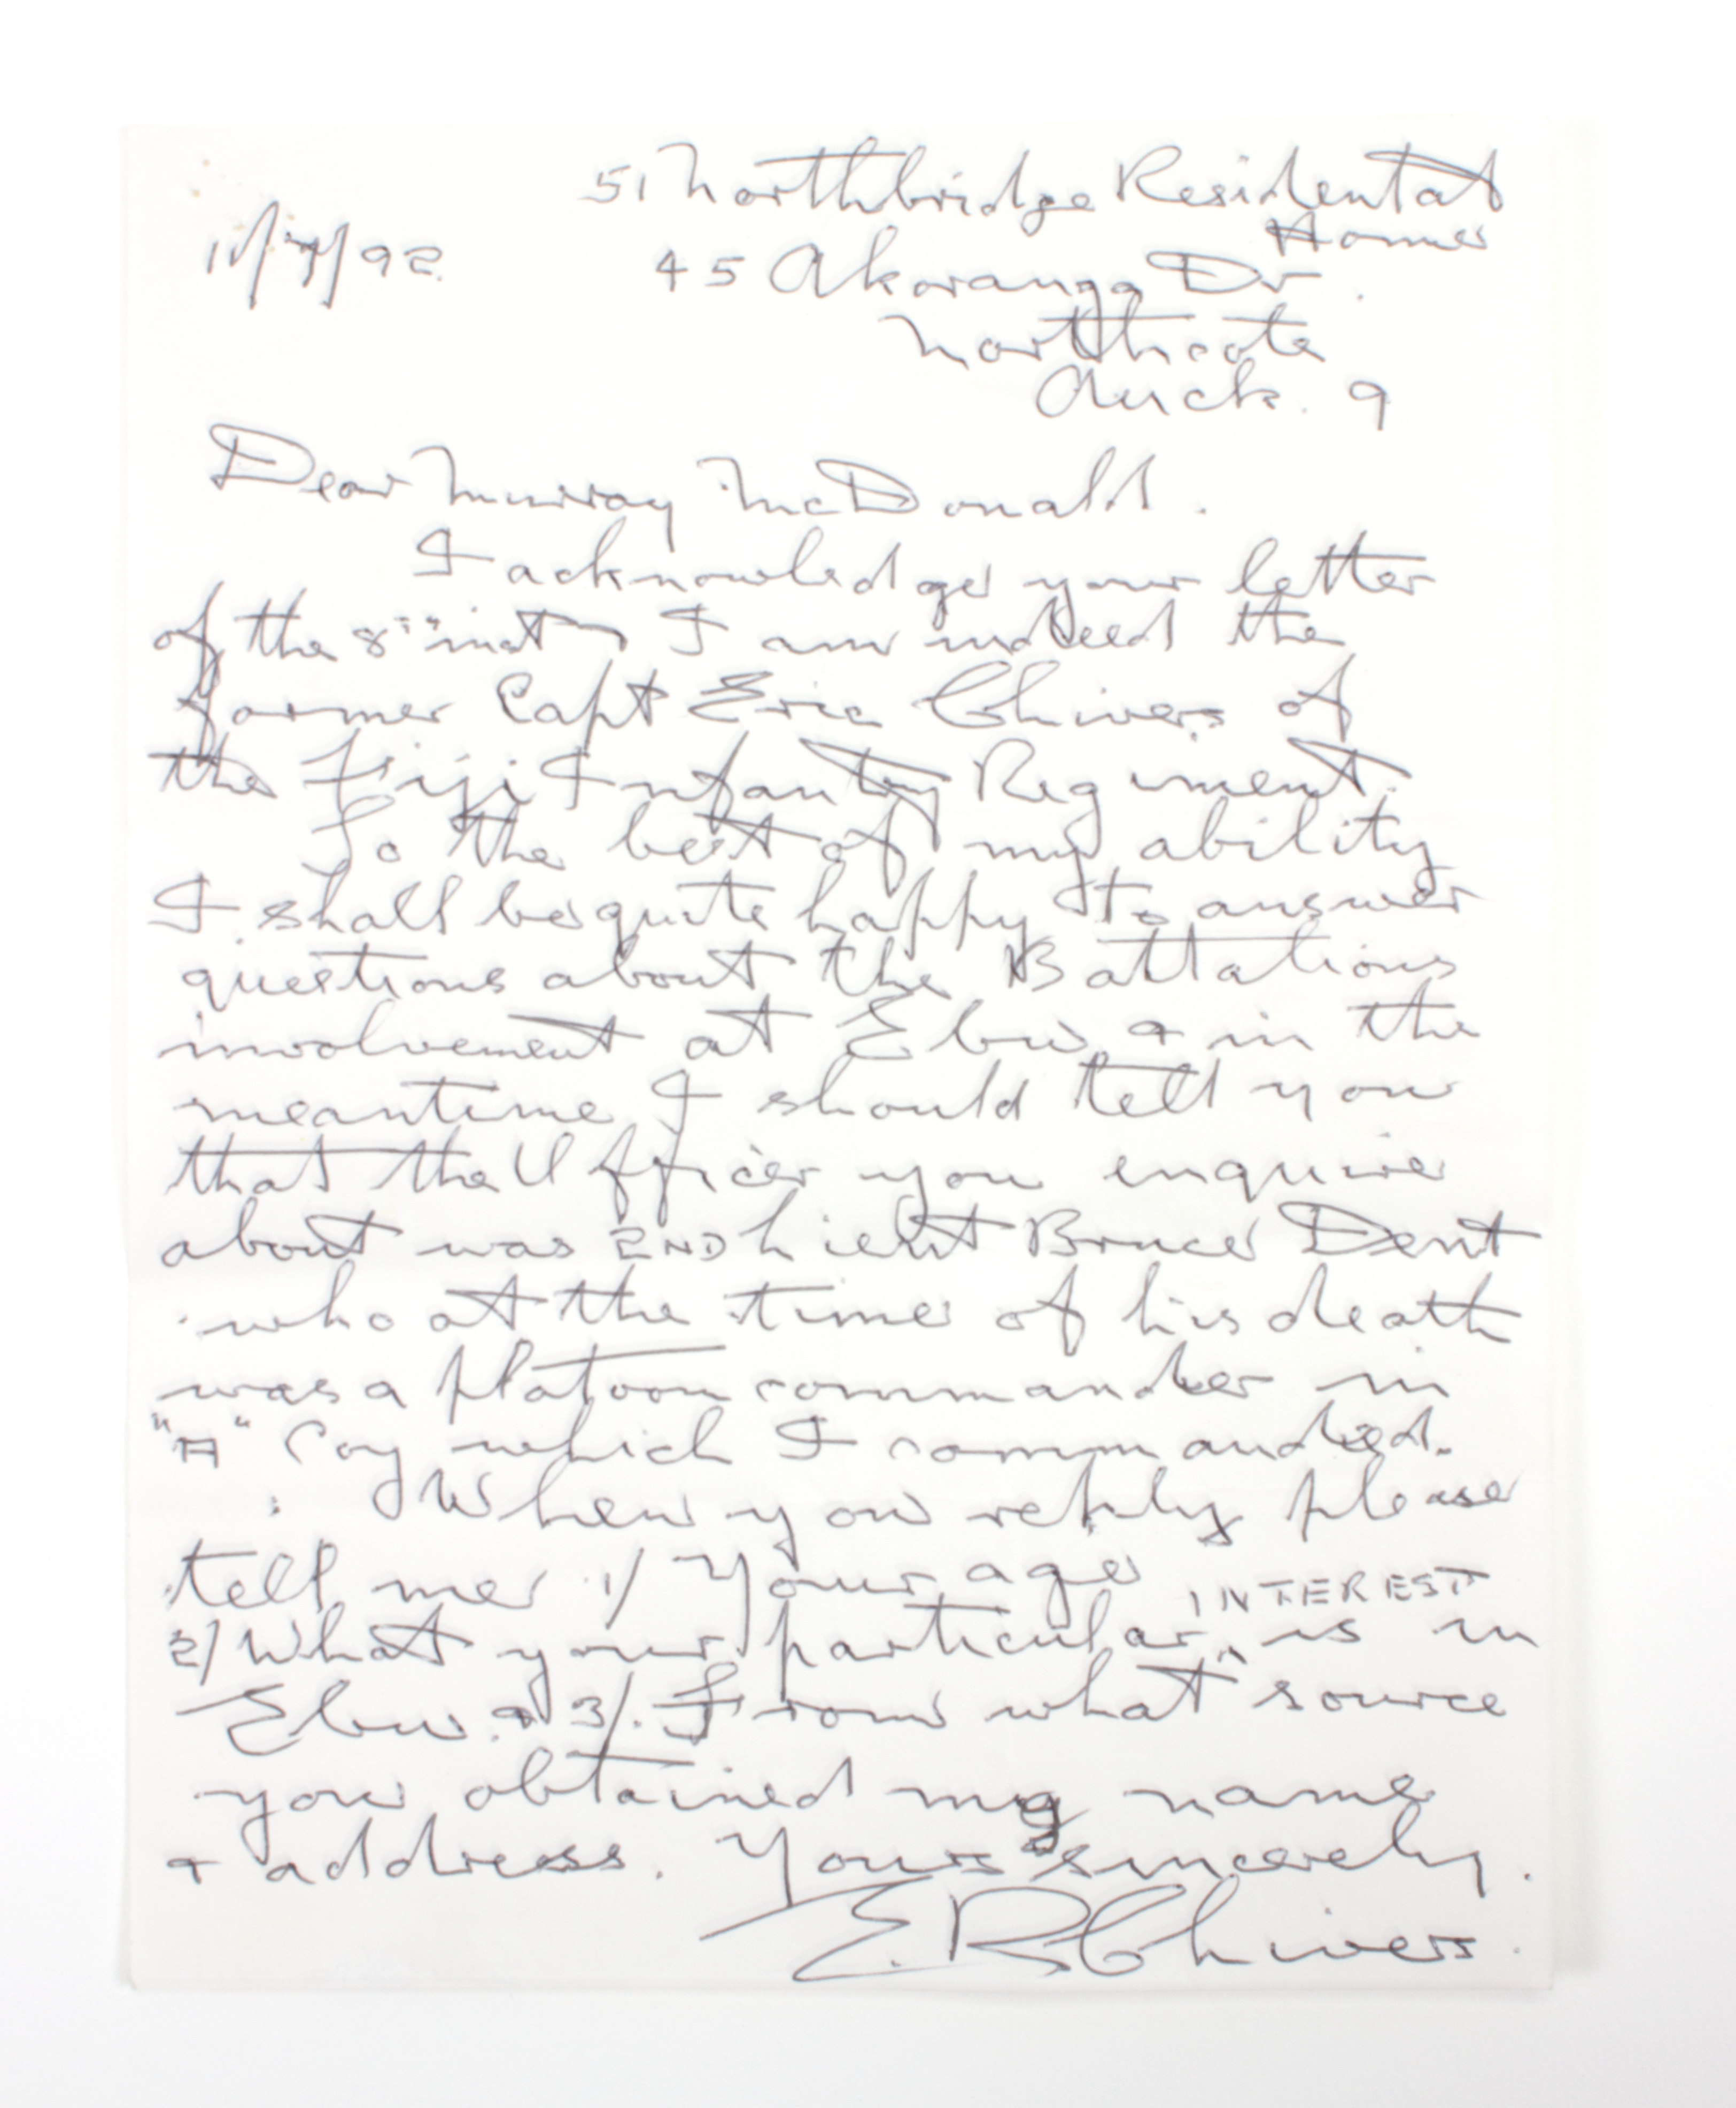 51 Northbridge Residental
Homes
11/7/92 45 Akoranga Dr.
Northcote
Auck. 9
Dear Murray McDonald.
I acknowledge your letter
of the 8" inst I am indeed the
former Capt Eric Chivers of
the Fiji Infantry Regiment.
To the best of my ability
I shall be quite happy to answer
questions about the Battalions
involvement at Ebu, & in the
meantime I should tell you
that the Officer you enquire
about was 2ND Lieut Bruce Dent
who at the time of his death
was a platoon commander in
"A" Coy which I commanded.
When you reply please
tell me 1/ Your age
INTEREST
2/ What your particular is in
Ebu & 3/ From what source
you obtained my name
& address. Yours sincerely.
E R Chivers.